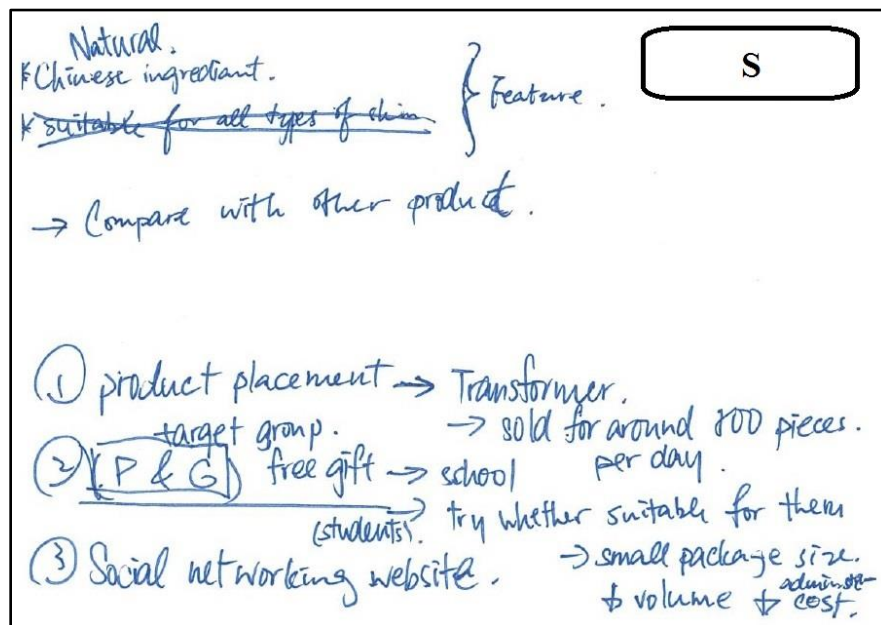 Natural.
* Chinese ingrediant.
* suitable for all types of skin
} Feature.
S
→ Compare with other product.
① product placement → Transformer.
→ sold for around 800 pieces.
per day.
target group.
② (P & G) free gift → school
(students). → try whether suitable for them
→ small package size.
③ Social networking website.
↓ volume ↓ cost.